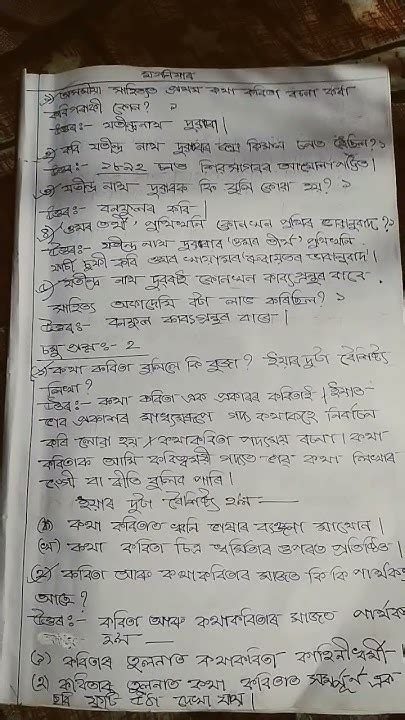 ১) অসমীয়া সাহিত্যত প্ৰথম কথা কবিতা ৰচনা কৰা
কবিগৰাকী কোন? ১
উত্তৰ:- যতীন্দ্ৰনাথ দুৱৰা।
২) কবি যতীন্দ্ৰ নাথ দুৱৰাৰ জন্ম কিমান চনত হৈছিল? ১
উত্তৰ:- ১৮৯২ চনত শিৱসাগৰৰ
৩) যতীন্দ্ৰ নাথ দুৱৰাক কি বুলি কোৱা হয়? ১
উত্তৰ:- বনফুলৰ কবি।
৪) 'ওমৰ তীৰ্থ' পুথিখনি কোনখন পুথিৰ ভাবানুবাদ? ১
উত্তৰ:- যতীন্দ্ৰ নাথ দুৱৰাৰ 'ওমৰ তীৰ্থ' পুথিখনি
কবি ওমৰ খায়ামৰ ভাবানুবাদ।
৫) যতীন্দ্ৰ নাথ দুৱৰাই কোনখন কাব্যগ্ৰন্থৰ বাবে
সাহিত্য অকাডেমি বঁটা লাভ কৰিছিল? ১
উত্তৰ:- বনফুল কাব্যগ্ৰন্থৰ বাবে।
চমু প্ৰশ্ন:- 2
১) কথা কবিতা বুলিলে কি বুজা? ইয়াৰ দুটা বৈশিষ্ট্য
লিখা?
উত্তৰ:- কথা কবিতা এক প্ৰকাৰৰ কবিতাই। ইয়াত
ভাৱ প্ৰকাশৰ মাধ্যমৰূপে গদ্য কথাকহে নিৰ্বাচন
কৰি লোৱা হয়। কথাকবিতা পদ্যময় ৰচনা। কথা
কবিতাক আমি কবিত্বধৰ্মী গদ্যত ভাৱ কথা লিখাৰ
ভংগী বা ৰীতি বুলিব পাৰি।
ইয়াৰ দুটা বৈশিষ্ট্য হ'ল —
(ক) কথা কবিতাত ধ্বনি ভাষাৰ ব্যঞ্জনা
(খ) কথা কবিতা চিত্ৰ ধৰ্মিতাৰ ওপৰত প্ৰতিষ্ঠিত।
২) কবিতা আৰু কথাকবিতাৰ মাজত কি কি পাৰ্থক্য
আছে?
উত্তৰ:- কবিতা আৰু কথাকবিতাৰ মাজত পাৰ্থক্য
হ'ল —
(১) কবিতাৰ তুলনাত কথাকবিতা কাহিনীধৰ্মী।
(২) কবিতাৰ তুলনাত কথা কবিতাত সম্পূৰ্ণ এক
ভাৱ ফুটি উঠা দেখা যায়।